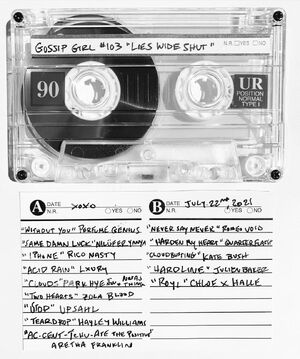 GOSSIP GIRL #103 "LIES WIDE SHUT"
N.R. YES NO
90
UR
POSITION
NORMAL
TYPE I
A DATE XOXO
N.R. YES NO
"WITHOUT YOU" PERFUME GENIUS
"SAME DAMN LUCK" NILÜFER YANYA
"IPHONE" RICO NASTY
"ACID RAIN" LXURY
"CLOUDS" PARK HYE JIN
"TWO HEARTS" ZOLA BLOOD
"STOP" UPSAHL
"TEARDROP" HAYLEY WILLIAMS
"AC-CENT-TCHU-ATE THE POSITIVE"
ARETHA FRANKLIN
B DATE JULY 22ND 2021
N.R. YES NO
"NEVER SAY NEVER" ROMEO VOID
"HARDEN MY HEART" QUARTERFLASH
"CLOUDBUSTING" KATE BUSH
"HARDLINE" JULIEN BAKER
"ROYL" CHLOE X HALLE